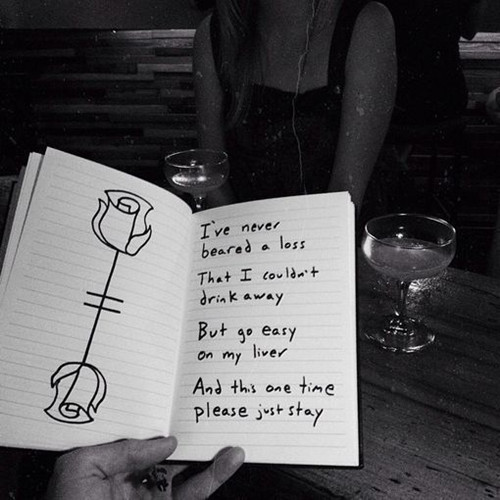 I've never
beared a loss
That I couldn't
drink away
But go easy
on my liver
And this one time
please just stay